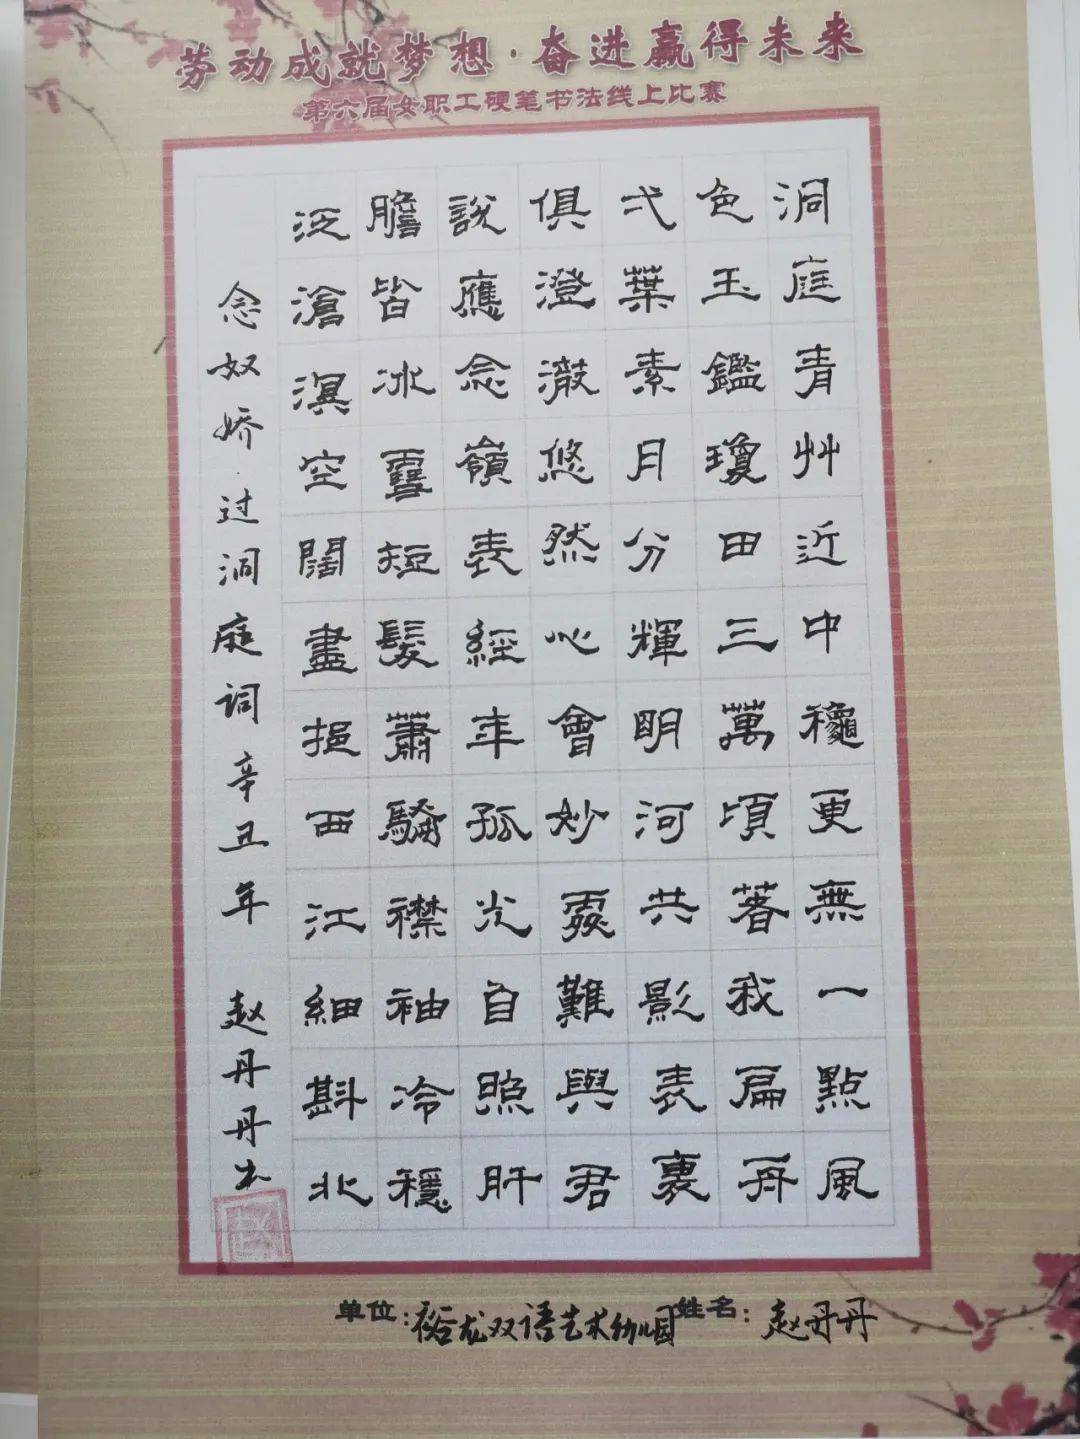 劳动成就梦想·奋进赢得未来
第六届女职工硬笔书法线上比赛
洞庭青艸近中穐更無一點風
色玉鑑瓊田三萬頃著我扁舟
弌葉素月分輝明河共影表裏
俱澄澈悠然心會妙處難與君
説應念嶺表經年孤光自照肝
膽皆冰雪短髮蕭騷襟袖冷穩
泛滄溟空闊盡挹西江細斟北
念奴娇·过洞庭词辛丑年 赵丹丹书
单位:裕龙双语艺术幼儿园 姓名:赵丹丹